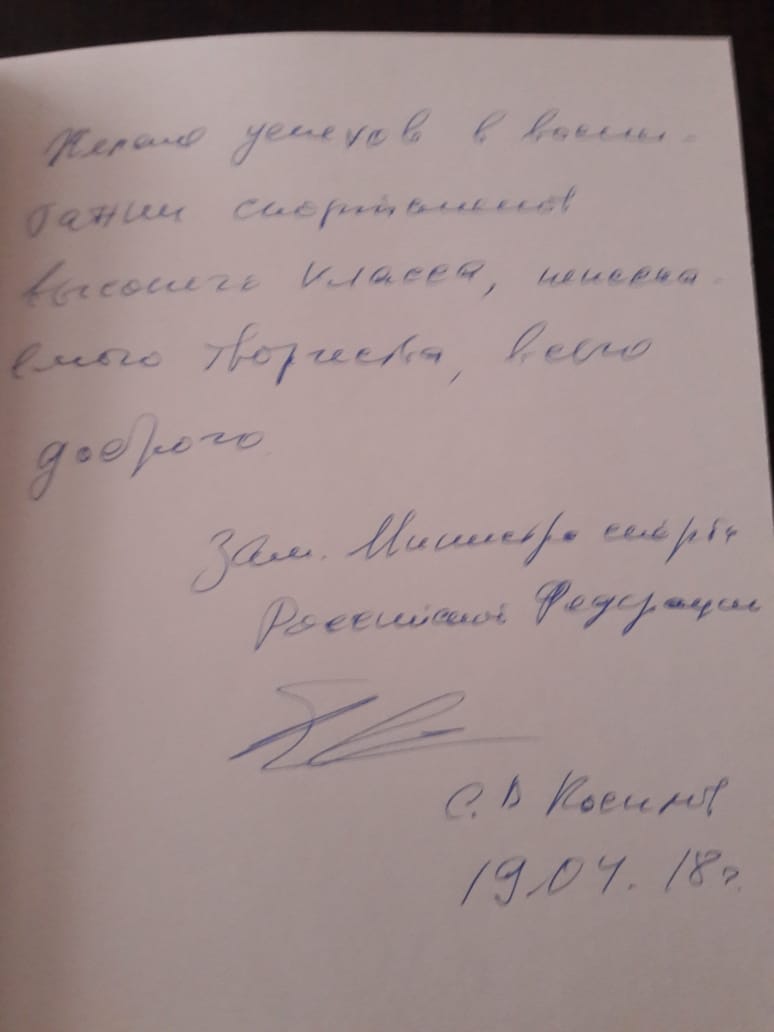 Желаю успехов в воспи-
тании спортсменов
высокого класса, неисся
емого творчества, всего
доброго
Зам. Министра спорта
Российской Федерации
С.В Косилов
19.04.18г.